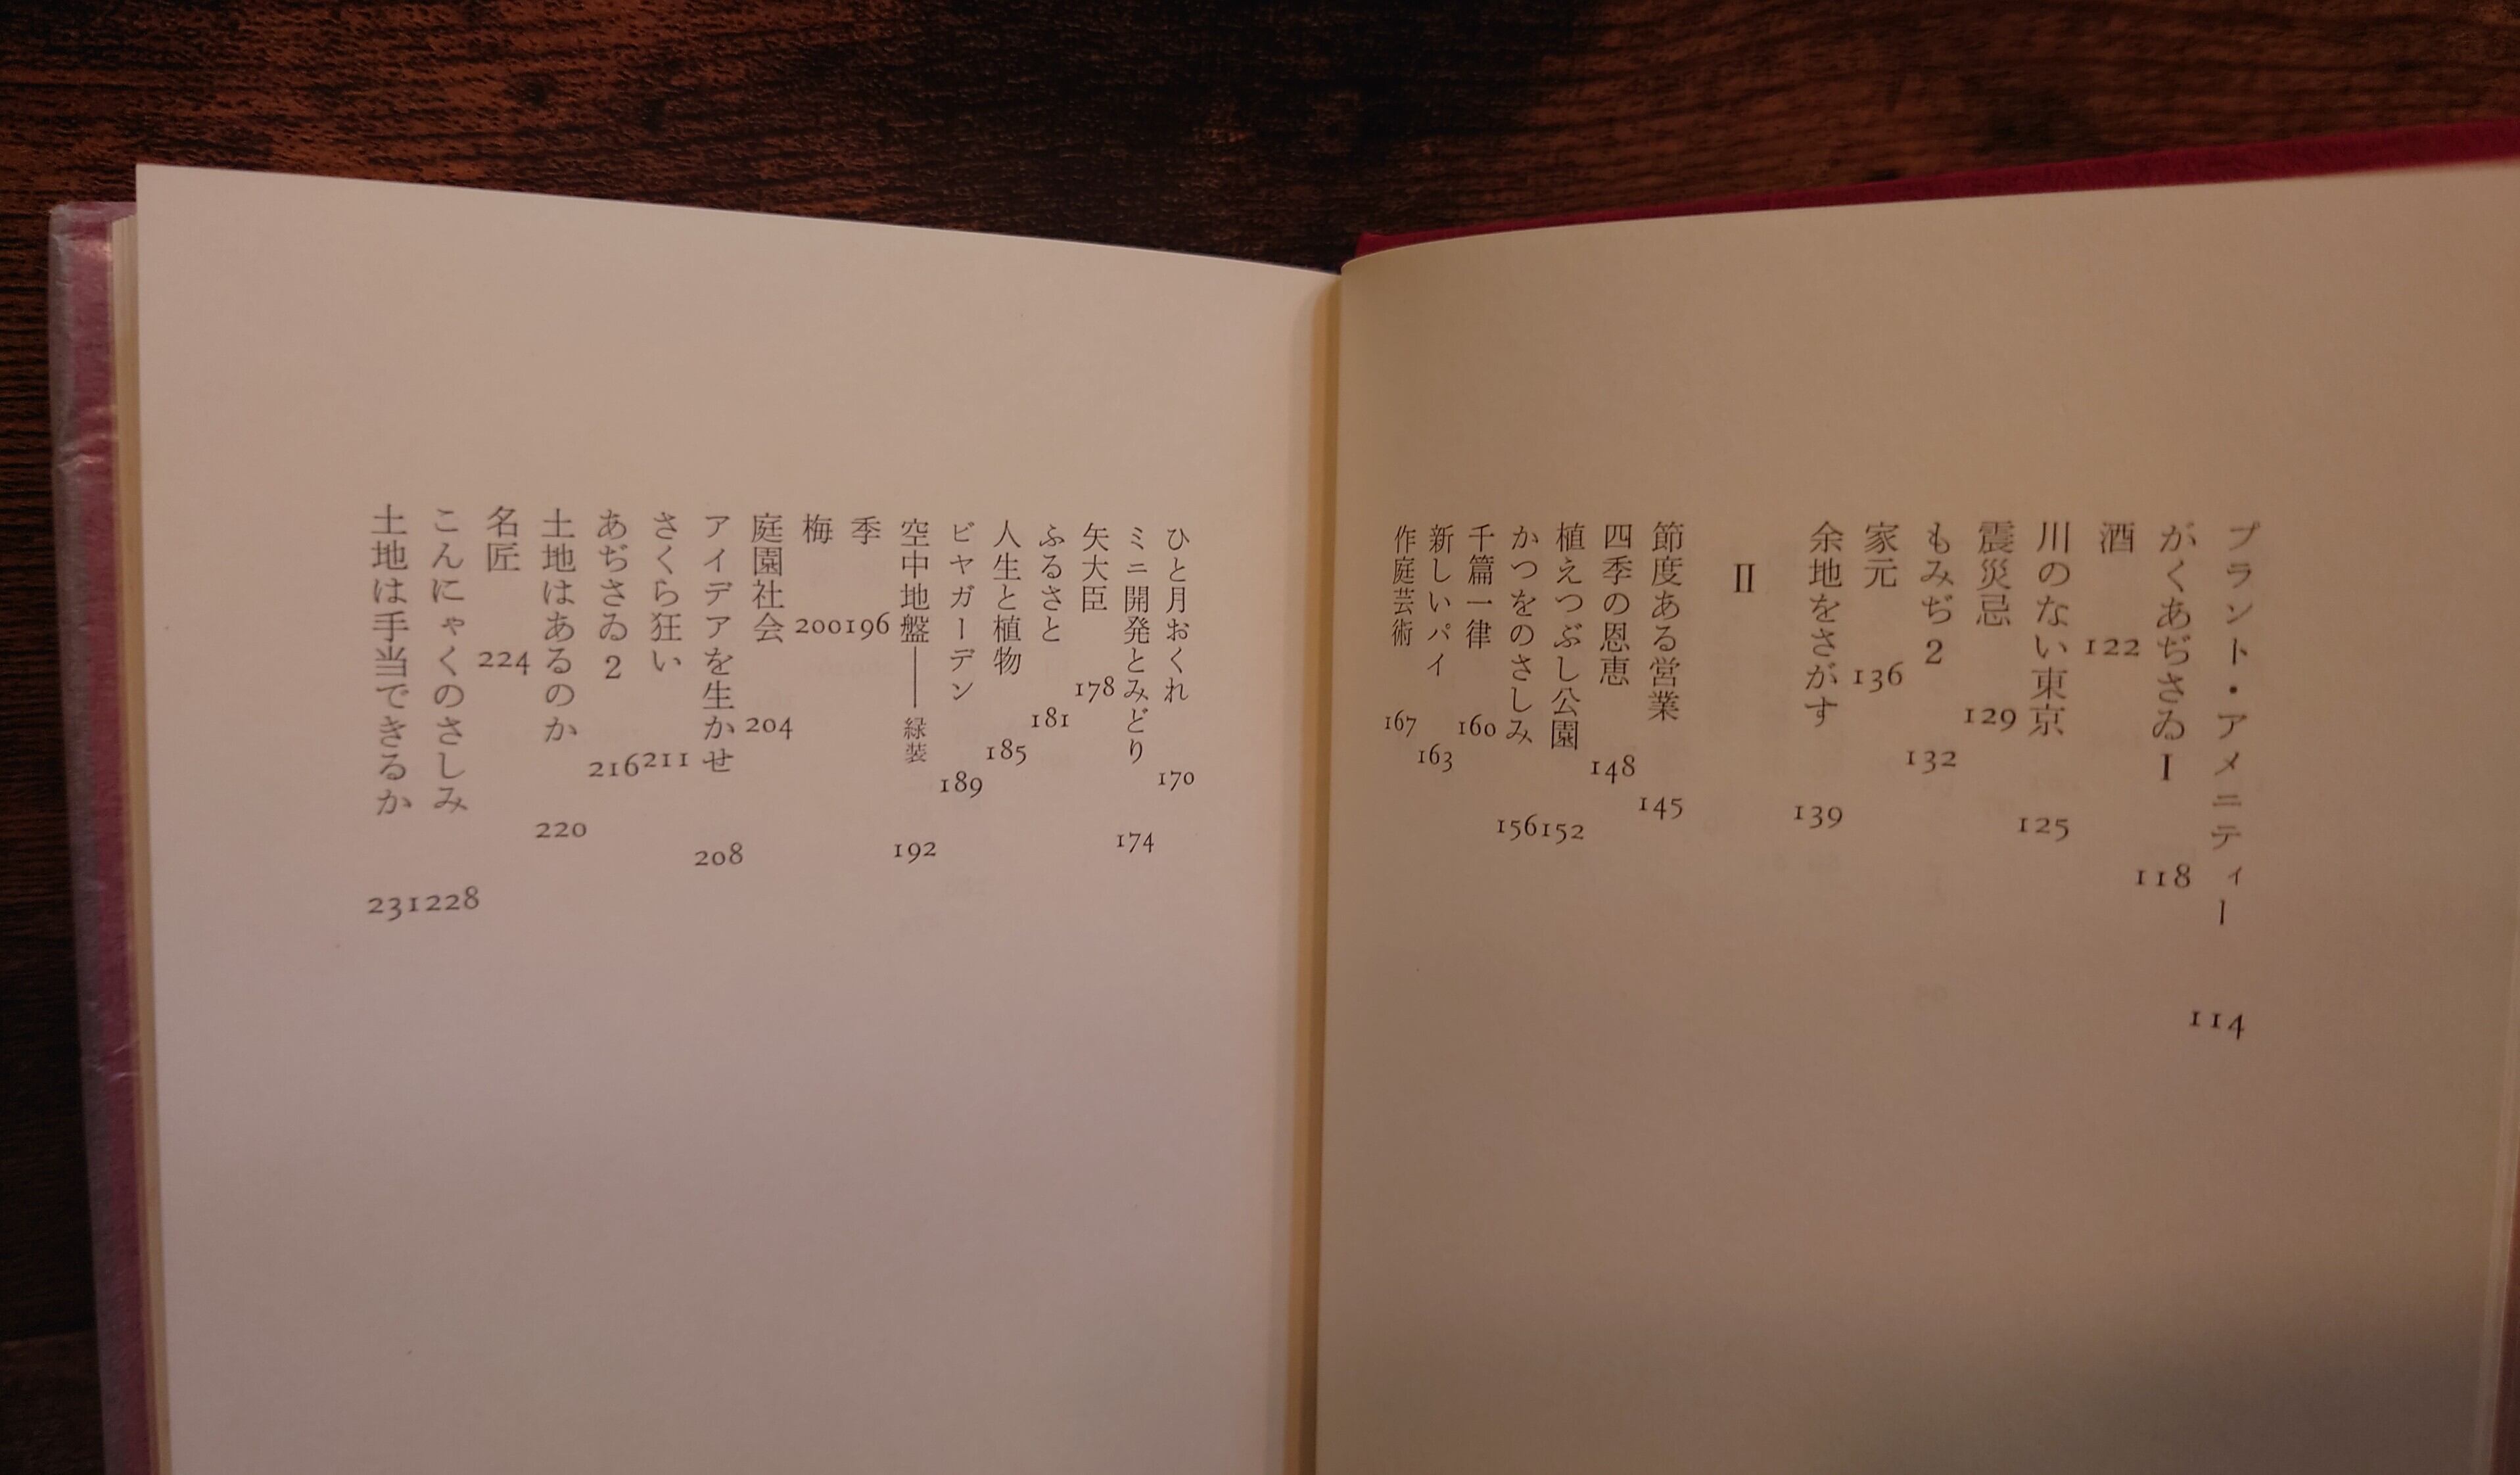 プラント・アメニティー 114
がくあぢさゐ I 118
酒 122
川のない東京 125
震災忌 129
もみぢ 2 132
家元 136
余地をさがす 139
II
節度ある営業 145
四季の恩恵 148
植えつぶし公園 152
かつをのさしみ 156
千篇一律 160
新しいパイ 163
作庭芸術 167
ひと月おくれ 170
ミニ開発とみどり 174
矢大臣 178
ふるさと 181
人生と植物 185
ビヤガーデン 189
空中地盤――緑装 192
季 196
梅 200
庭園社会 204
アイデアを生かせ 208
さくら狂い 211
あぢさゐ 2 216
土地はあるのか 220
名匠 224
こんにゃくのさしみ 228
土地は手当できるか 231